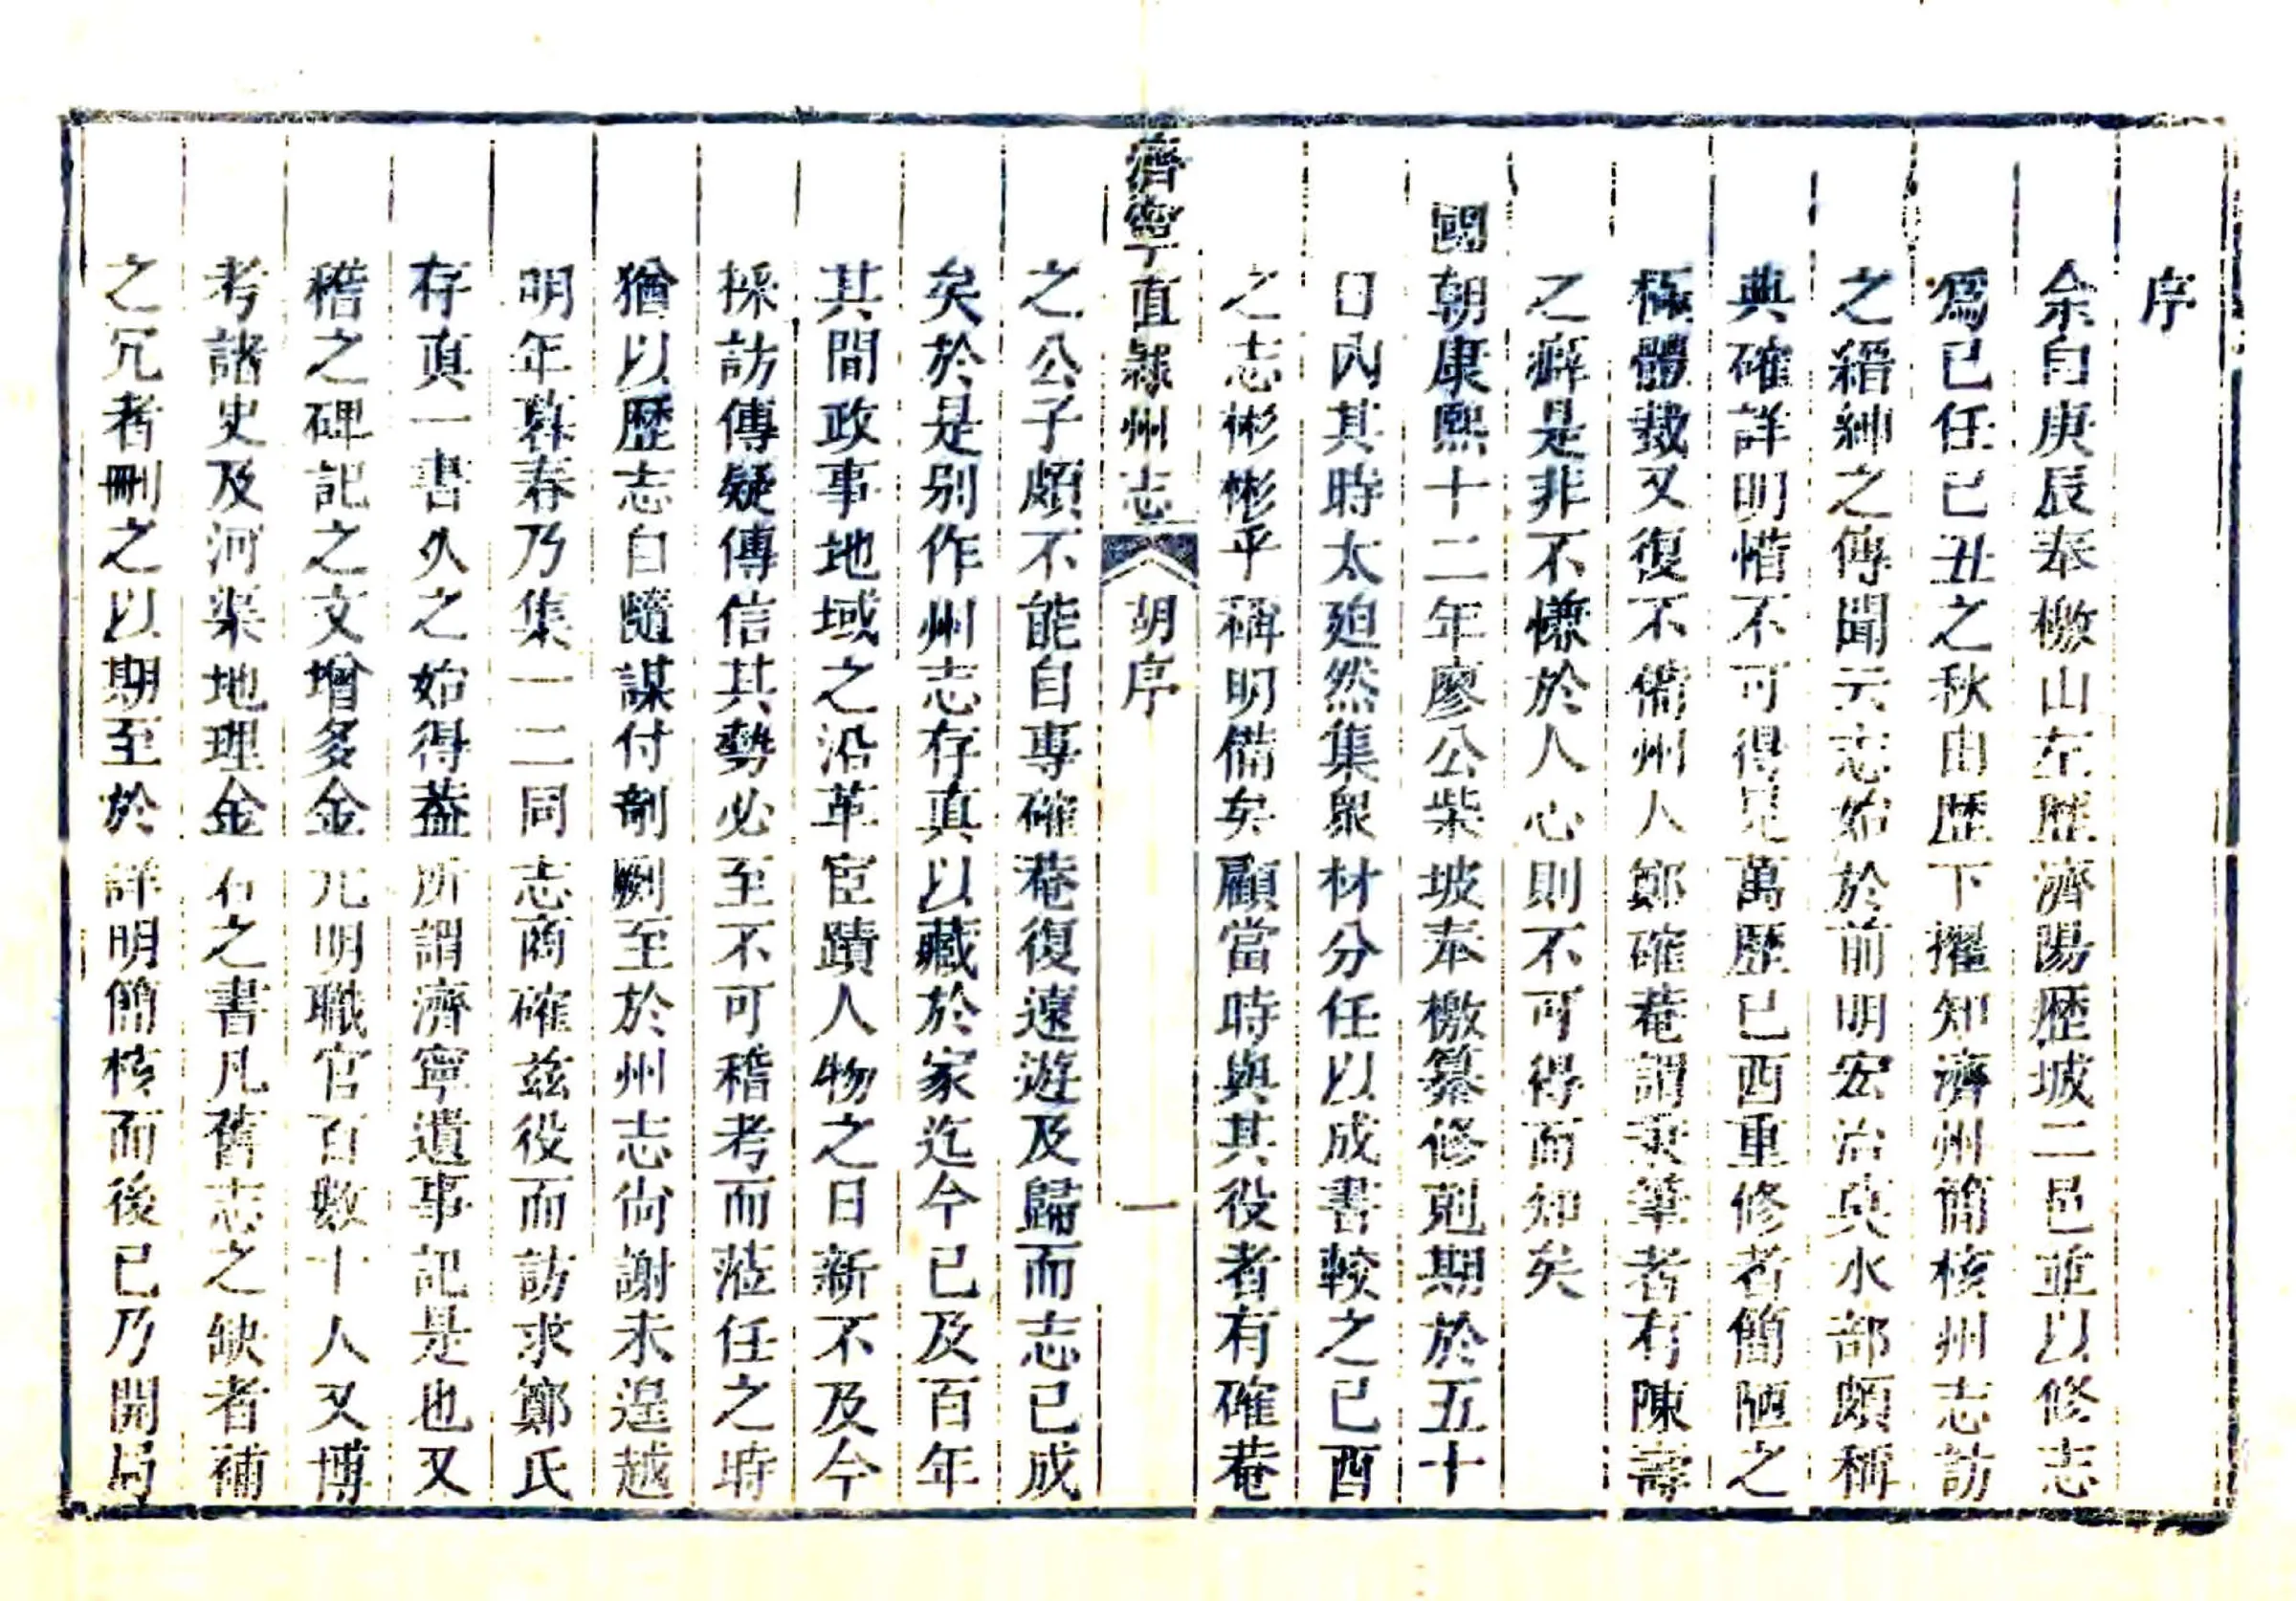 序
余自庚辰奉檄山左歷濟陽歷坡二邑並以修志
爲已任已丑之秋由歷下擢知濟州簡核州志訪
之縉紳之傳聞云志始於前明宏治吳水部頗稱
典確詳明惜不可得見萬歷已酉重修者簡陋之
極體裁又復不備州人鄭確菴謂秉筆者有陳壽
之癖是非不慊於人心則不可得而知矣
國朝康熙十二年廖公柴坡奉檄纂修剋期於五十
日內其時太廹然集衆材分任以成書較之已酉
之志彬彬乎稱明備矣顧當時與其役者有確菴
濟寧直隸州志 胡序 一
之公子頗不能自專確菴復遠遊及歸而志已成
矣於是别作州志存真以藏於家迄今已及百年
其間政事地域之沿革宦蹟人物之日新不及今
採訪傳疑傳信其勢必至不可稽考而蒞任之時
猶以歷志自隨謀付剞劂至於州志尙謝未遑越
明年暮春乃集一二同志商確茲役而訪求鄭氏
存真一書久之始得葢所謂濟寧遺事記是也又
稽之碑記之文增多金元明職官百數十人又博
考諸史及河渠地理金石之書凡舊志之缺者補
之冗者刪之以期至於詳明簡核而後已乃開局